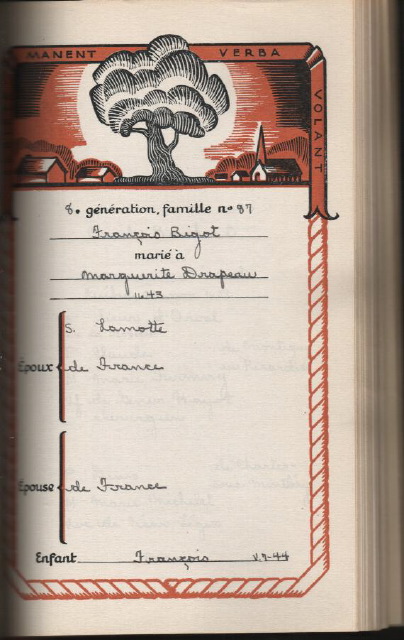 MANENT VERBA VOLANT
8e génération, famille no 87
François Bigot
marié à
Marguerite Drapeau
1643
S. Lamotte
Époux de France
Épouse de France
Enfant François V.7-44